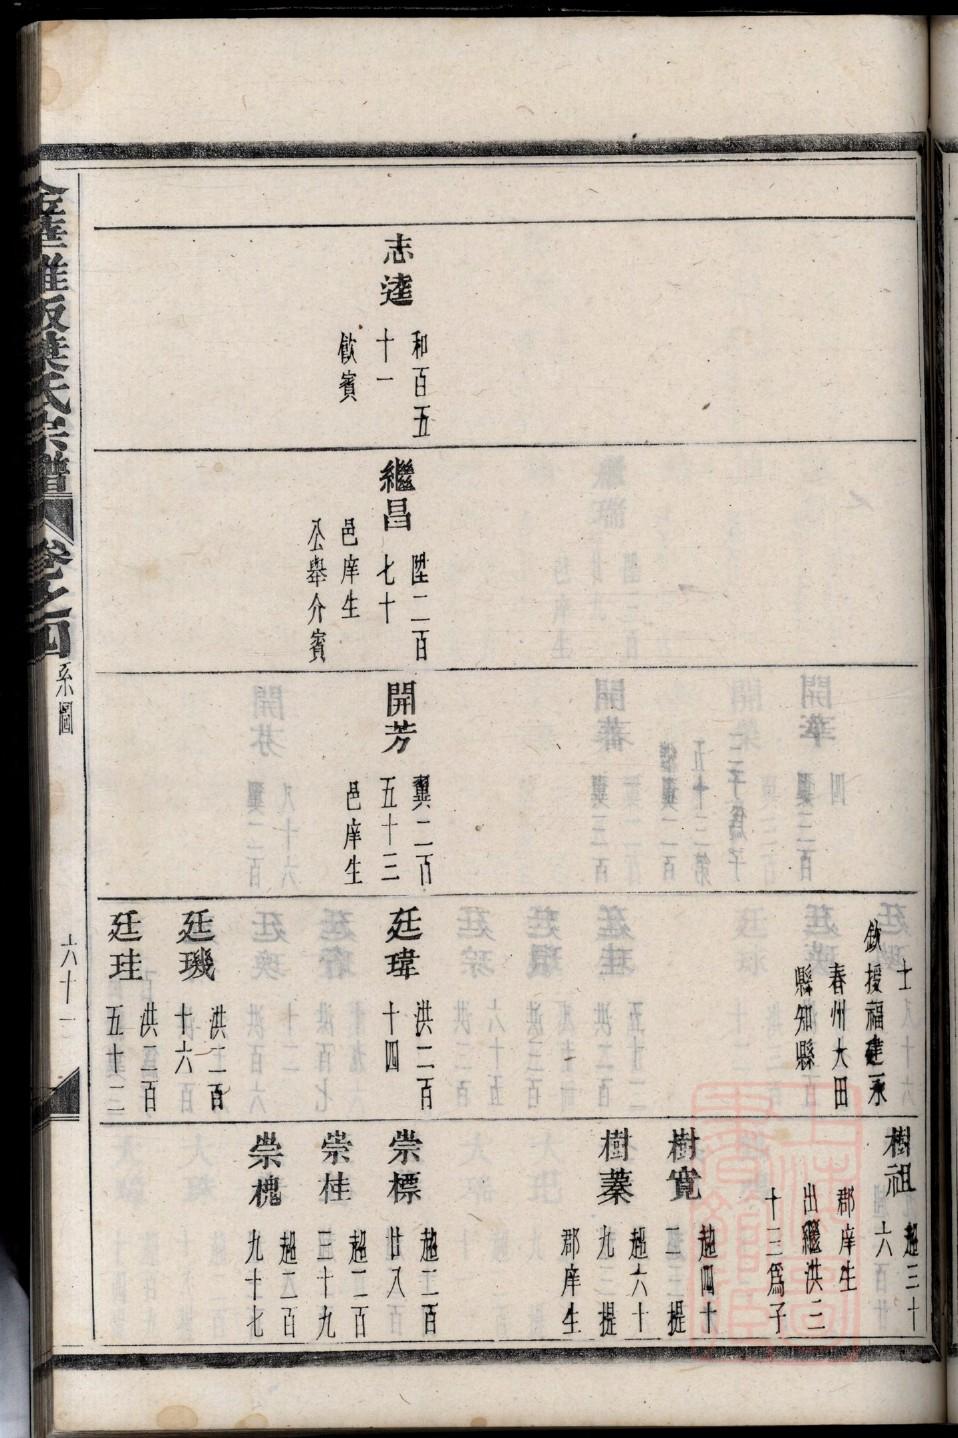 志達
和百五
十一
飲賓
繼昌
陞二百
七十
邑庠生
公舉介賓
開芳
翼二百
五十三
邑庠生
士
欽授福建永
春州大田
縣知縣
廷瑋
洪二百
十四
廷璣
洪二百
十六
廷珪
洪二百
五十二
樹祖
趨三十
六
郡庠生
出繼洪三
十三為子
樹寬
趨四十
三提
樹蓁
趨六十
九提
郡庠生
崇標
趨二百
廿八
崇桂
趨二百
三十九
崇槐
趨二百
九十七
金華雅畈葉氏宗譜
卷之四
系圖
六十一